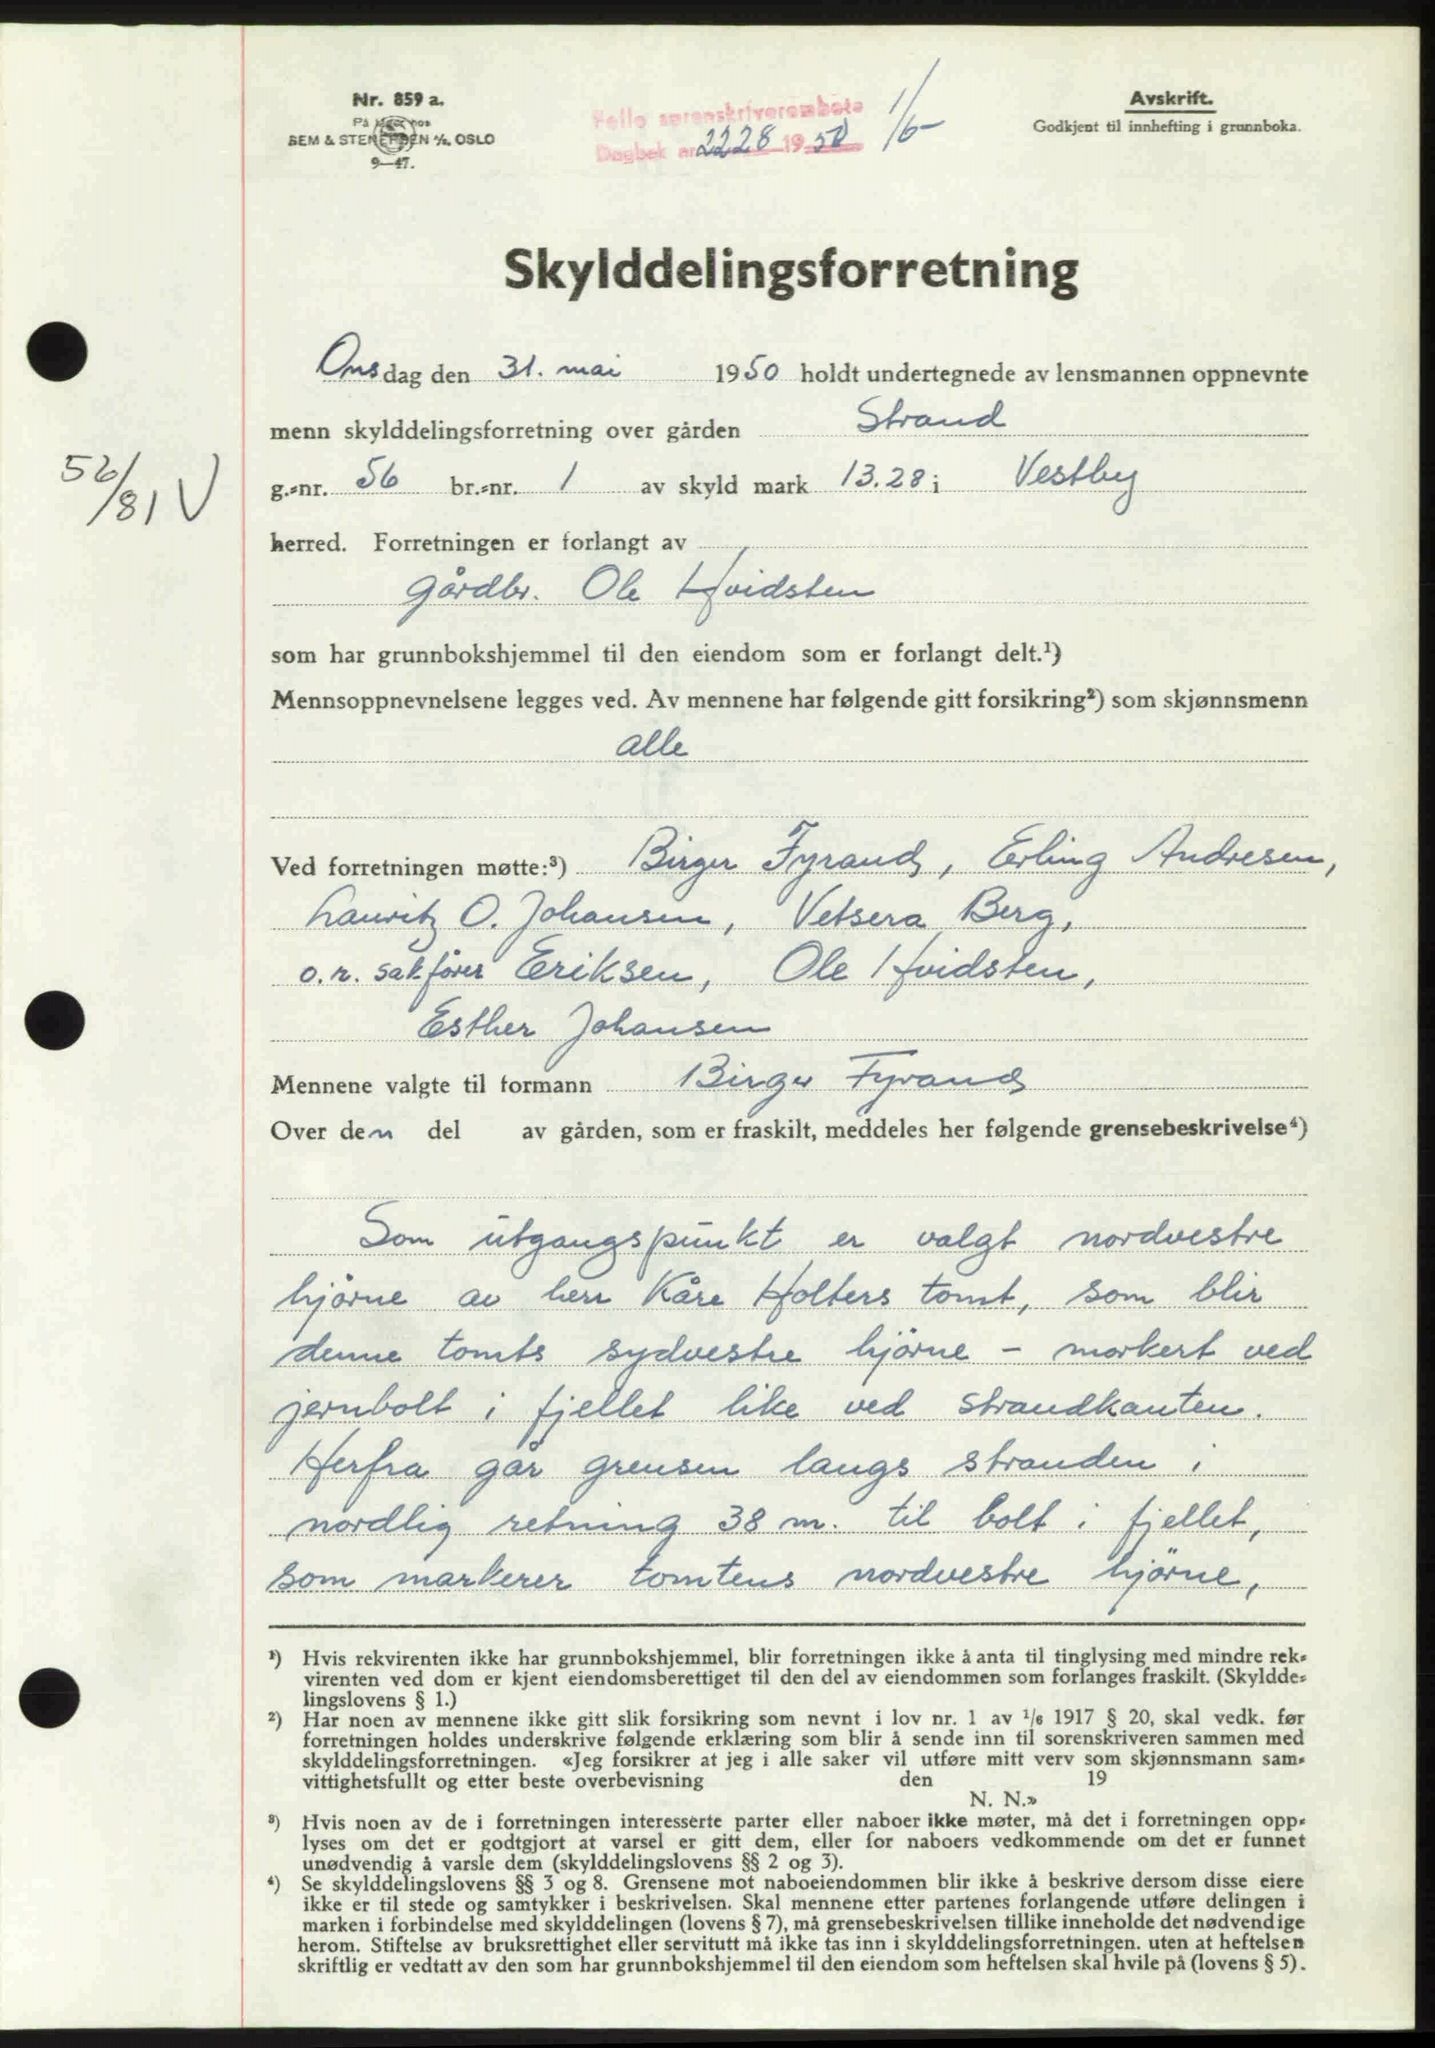 Nr. 859 a.
På lager hos
SEM & STENERSEN A/S. OSLO
9—47.
Follo sorenskriverembete
Dagbok nr 2228 1950
1/6-
Avskrift.
Godkjent til innhefting i grunnboka.
Skylddelingsforretning
Onsdag den 31. mai 1950 holdt undertegnede av lensmannen oppnevnte
menn skylddelingsforretning over gården Strand
56/81 V
g.=nr. 56 br.=nr. 1 av skyld mark 13.28 i Vestby
herred. Forretningen er forlangt av
gårdbr. Ole Hvidsten
som har grunnbokshjemmel til den eiendom som er forlangt delt.¹)
Mennsoppnevnelsene legges ved. Av mennene har følgende gitt forsikring²) som skjønnsmenn
alle
Ved forretningen møtte:³) Birger Fyrand, Erling Andresen,
Lauritz O. Johansen, Vetsera Berg,
o.r. sakfører Eriksen, Ole Hvidsten,
Esther Johansen
Mennene valgte til formann Birger Fyrand
Over den del av gården, som er fraskilt, meddeles her følgende grensebeskrivelse⁴)
Som utgangspunkt er valgt nordvestre
hjørne av herr Kåre Holters tomt, som blir
denne tomts sydvestre hjørne – markert ved
jernbolt i fjellet like ved strandkanten.
Herfra går grensen langs stranden i
nordlig retning 38 m. til bolt i fjellet,
som markerer tomtens nordvestre hjørne,
¹) Hvis rekvirenten ikke har grunnbokshjemmel, blir forretningen ikke å anta til tinglysing med mindre rek=
virenten ved dom er kjent eiendomsberettiget til den del av eiendommen som forlanges fraskilt. (Skyldde=
lingslovens § 1.)
²) Har noen av mennene ikke gitt slik forsikring som nevnt i lov nr. 1 av ¹/6 1917 § 20, skal vedk. før
forretningen holdes underskrive følgende erklæring som blir å sende inn til sorenskriveren sammen med
skylddelingsforretningen. «Jeg forsikrer at jeg i alle saker vil utføre mitt verv som skjønnsmann sam=
vittighetsfullt og etter beste overbevisning den 19
N. N.»
³) Hvis noen av de i forretningen interesserte parter eller naboer ikke møter, må det i forretningen opp=
lyses om det er godtgjort at varsel er gitt dem, eller for naboers vedkommende om det er funnet
unødvendig å varsle dem (skylddelingslovens §§ 2 og 3).
⁴) Se skylddelingslovens §§ 3 og 8. Grensene mot naboeiendommen blir ikke å beskrive dersom disse eiere
ikke er til stede og samtykker i beskrivelsen. Skal mennene etter partenes forlangende utføre delingen i
marken i forbindelse med skylddelingen (lovens § 7), må grensebeskrivelsen tillike inneholde det nødvendige
herom. Stiftelse av bruksrettighet eller servitutt må ikke tas inn i skylddelingsforretningen. uten at heftelsen
skriftlig er vedtatt av den som har grunnbokshjemmel til den eiendom som heftelsen skal hvile på (lovens § 5).